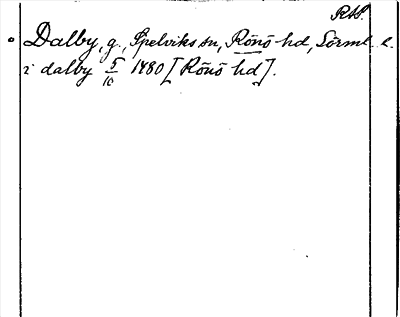 RAP.
Dalby, g., Spelviks sn, Rönö hd, Sörml l.
i dalby 5/10 1480 [Rönö hd].